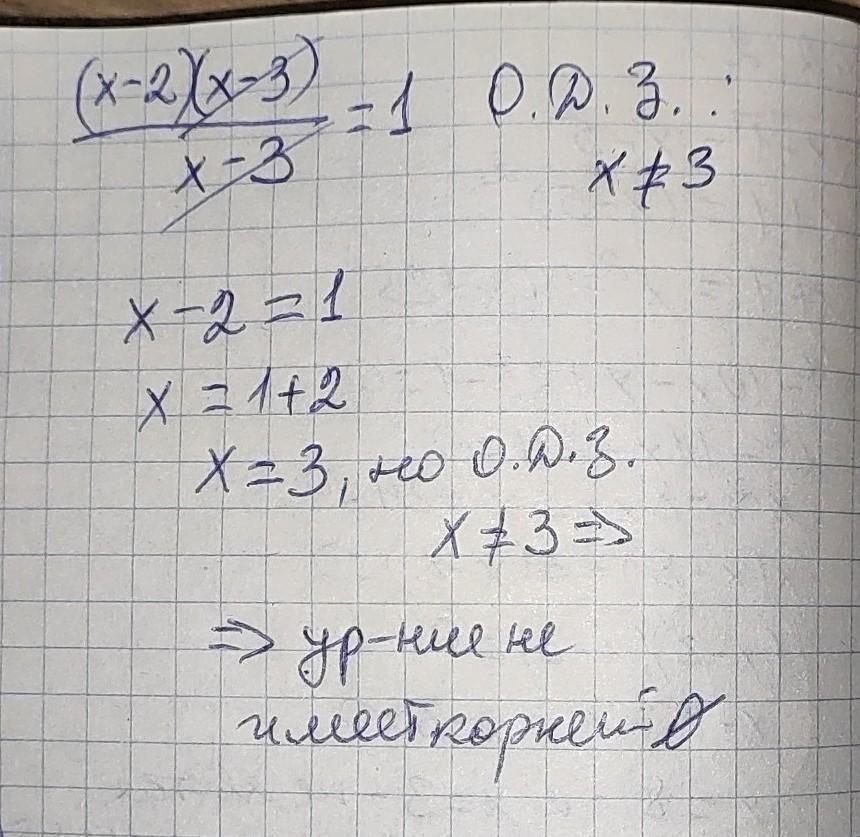 (x-2)(x-3)/(x-3) = 1 О.Д.З.:
x ≠ 3
x - 2 = 1
x = 1+2
x = 3, но О.Д.З.
x ≠ 3 =>
=> ур-ние не
имеет корней ∅